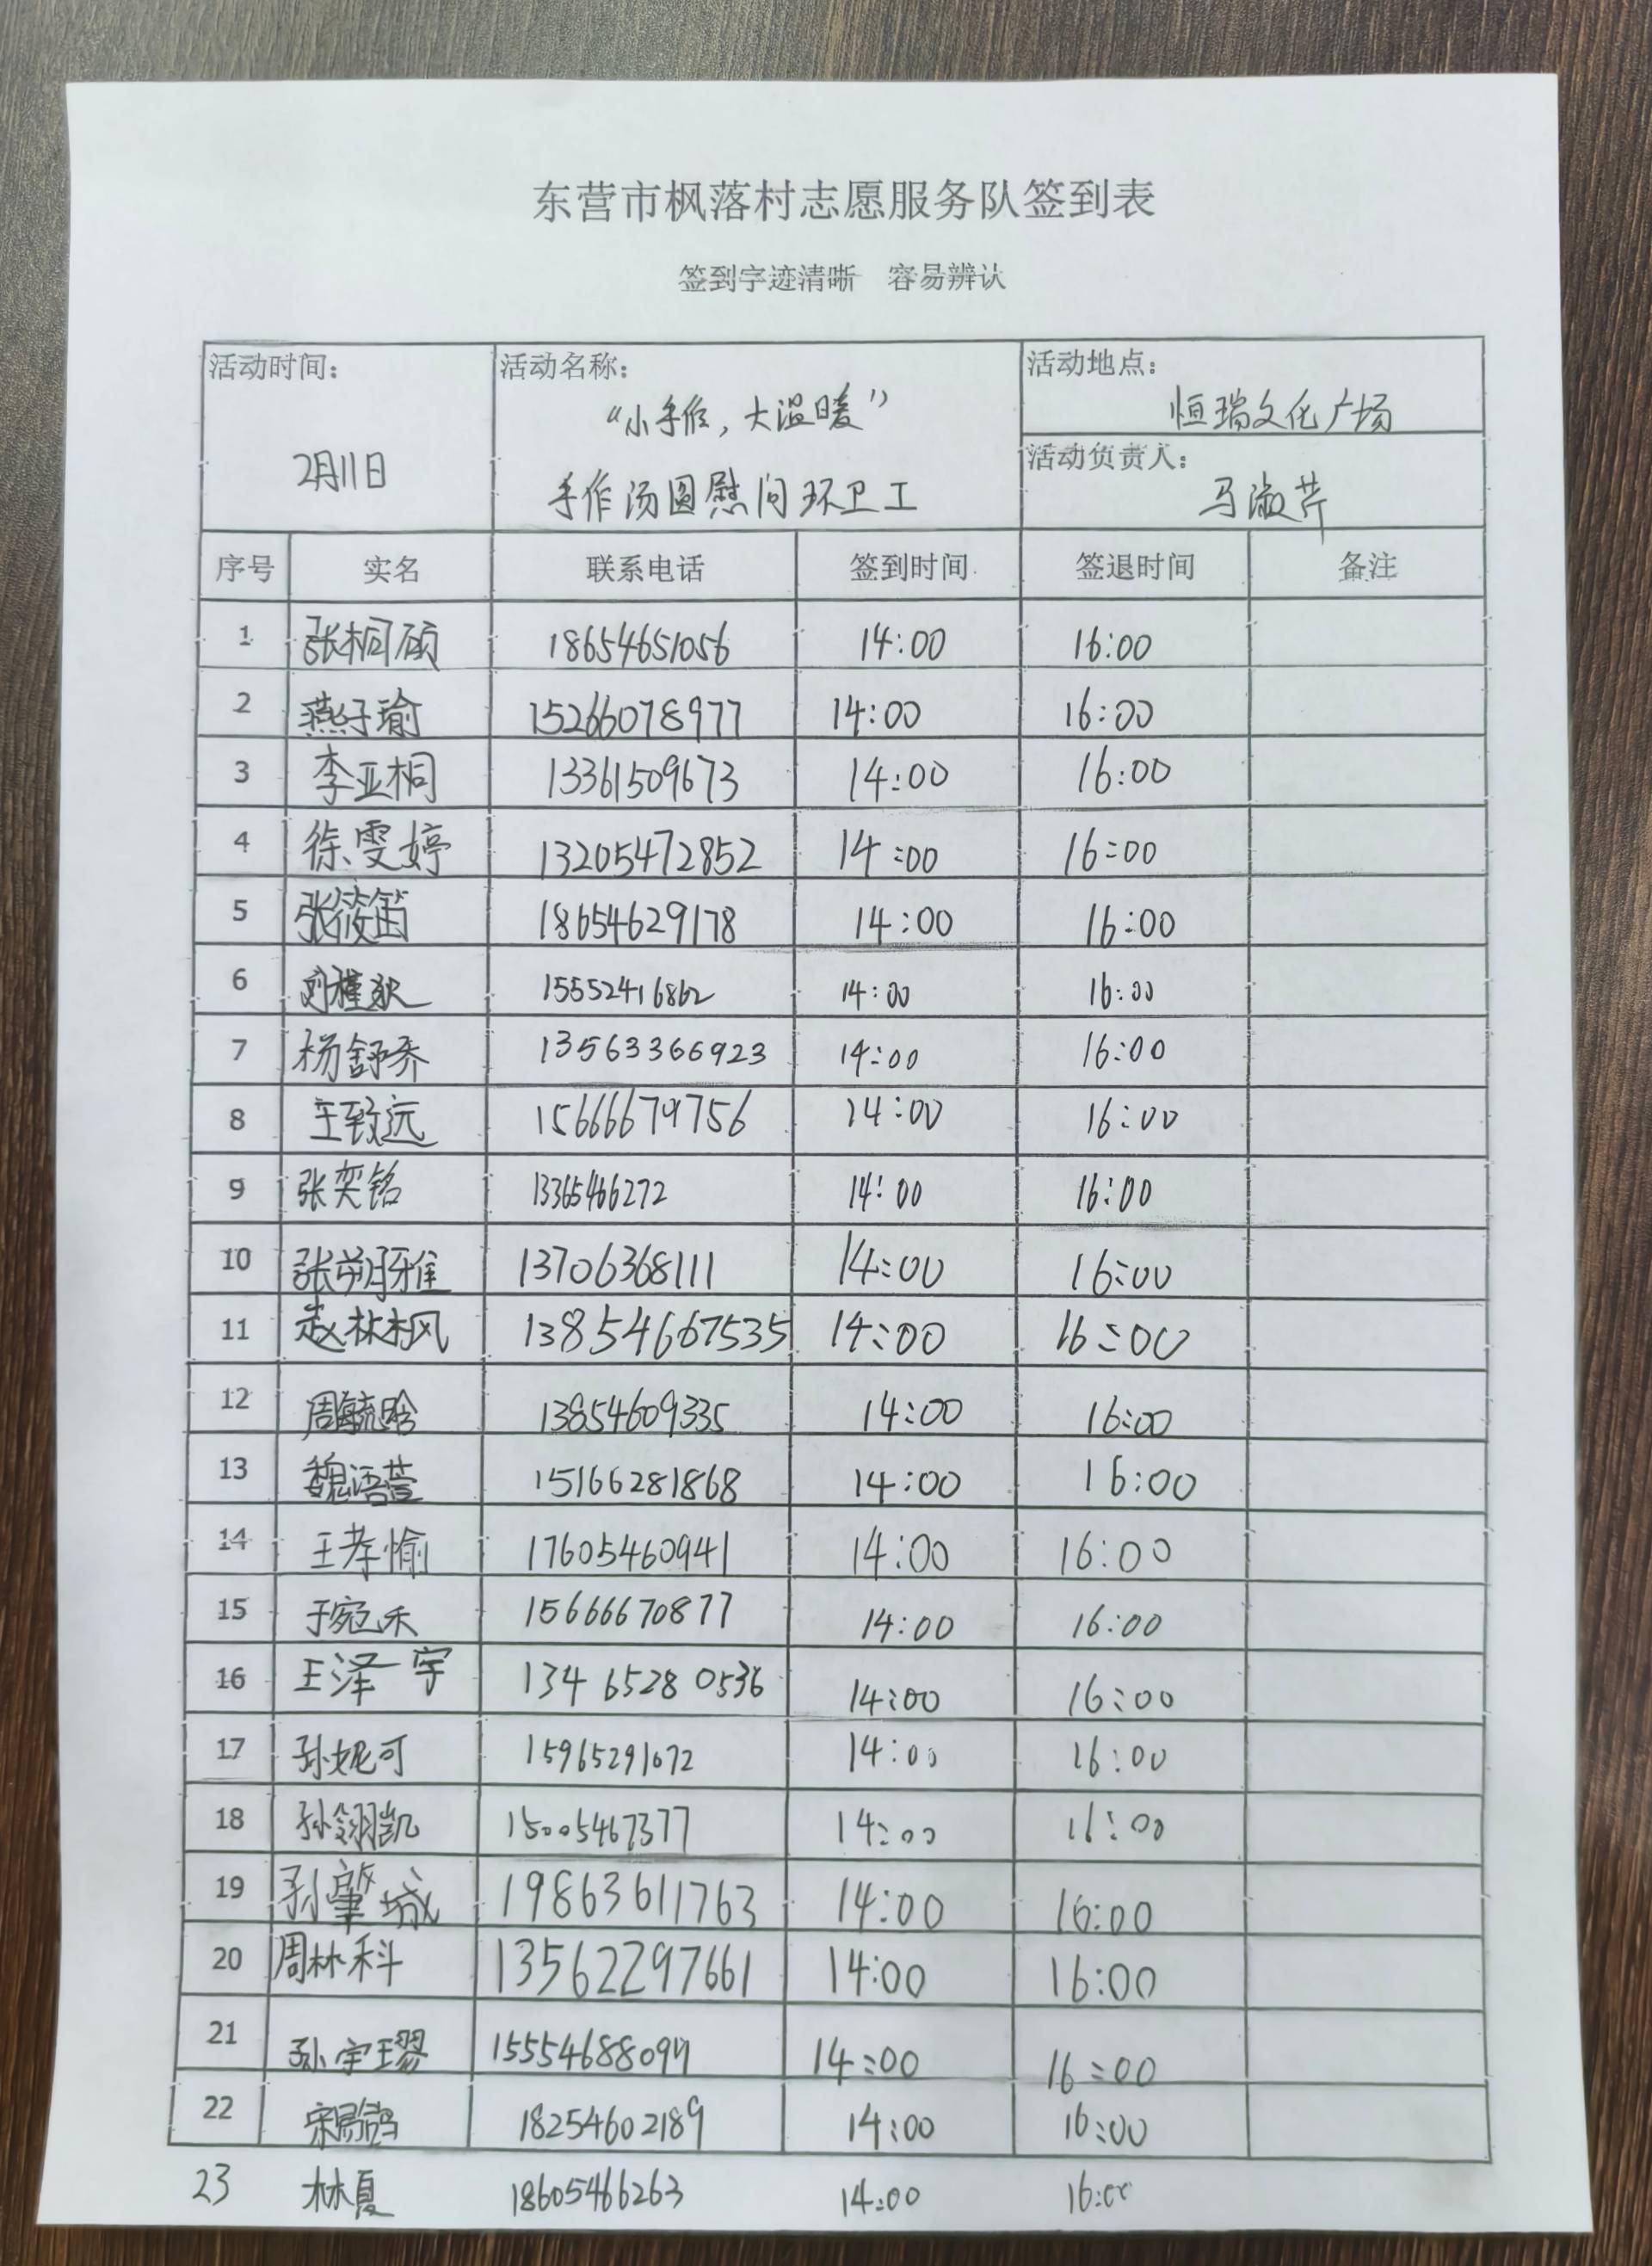 东营市枫落村志愿服务队签到表
签到字迹清晰 容易辨认
活动时间： 活动名称： 活动地点：
“小手作，大温暖” 恒瑞文化广场
活动负责人：
2月11日 手作汤圆慰问环卫工 马淑芹
序号 实名 联系电话 签到时间 签退时间 备注
1 张桐硕 18654651056 14:00 16:00
2 燕子瑜 15266078977 14:00 16:00
3 李亚桐 13361509673 14:00 16:00
4 徐雯婷 13205472852 14:00 16:00
5 张筱笛 18654629178 14:00 16:00
6 15552416862 14:00 16:00
7 杨舒乔 13563366923 14:00 16:00
8 王致远 15666679756 14:00 16:00
9 张奕铭 13365466272 14:00 16:00
10 13706368111 14:00 16:00
11 赵林枫 13854667535 14:00 16:00
12 周毓晗 13854609335 14:00 16:00
13 魏语萱 15166281868 14:00 16:00
14 王孝愉 17605460941 14:00 16:00
15 于宛禾 15666670877 14:00 16:00
16 王泽宇 134 6528 0536 14:00 16:00
17 孙妮可 15965291672 14:00 16:00
18 孙翎凯 15005467377 14:00 16:00
19 孙肇城 19863611763 14:00 16:00
20 周林科 13562297661 14:00 16:00
21 孙宇璆 14:00 16:00
22 18254602189 14:00 16:00
23 林夏 18605466263 14:00 16:00